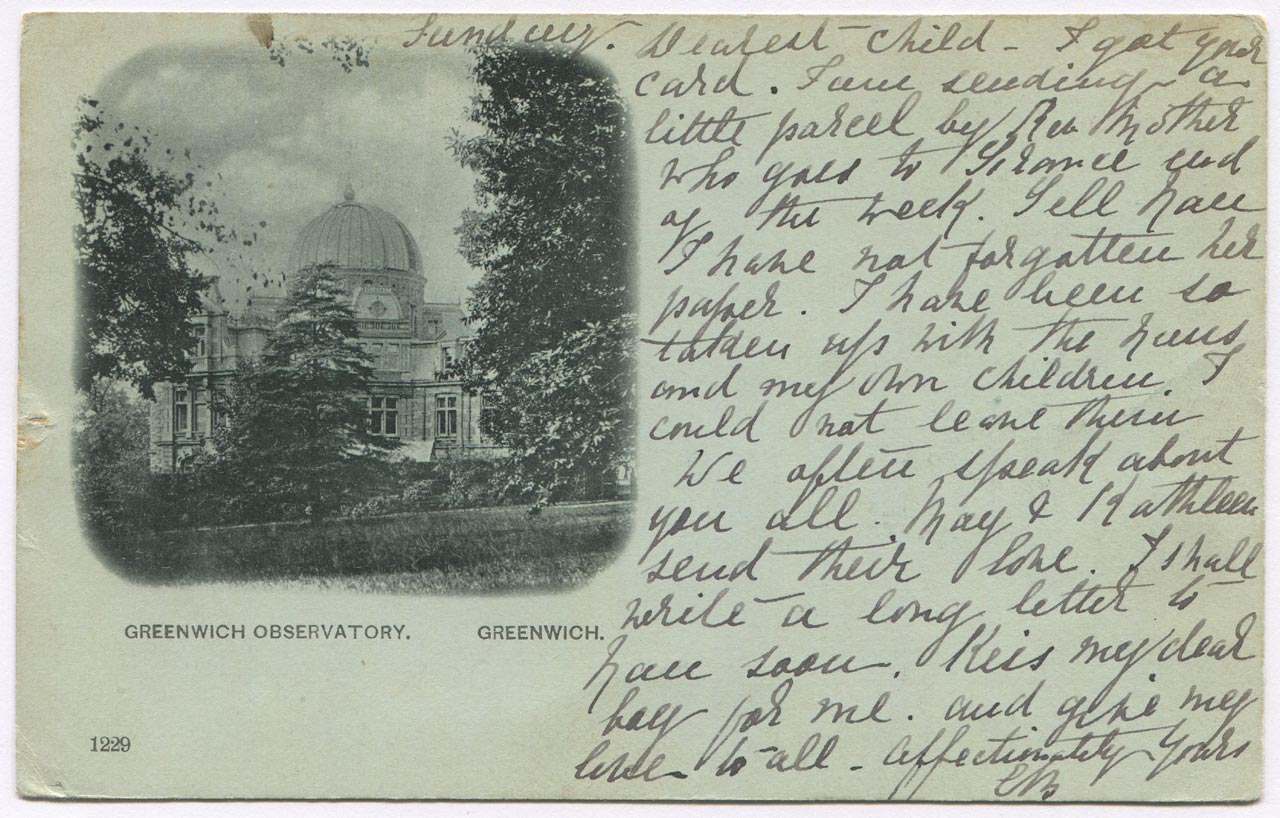 Sunday. Dearest Child - I got your
card. I am sending a
little parcel by Rev Mother
who goes to France end
of the week. Tell Nan
I have not forgotten her
paper. I have been so
taken up with the nuns
and my own children. I
could not leave them
We often speak about
you all. May & Kathleen
send their love. I shall
write a long letter to
Nan soon. Kiss my dear
boy for me. and give my
love to all - affectionately yours
GREENWICH OBSERVATORY. GREENWICH.
1229